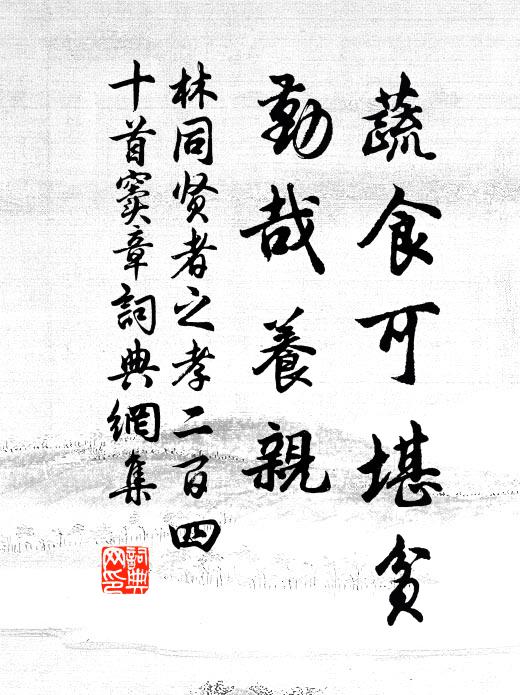 蔬食可堪貧
勤哉養親
林同贤者之孝二百四
十首窦章詞典網集
詞典
网印